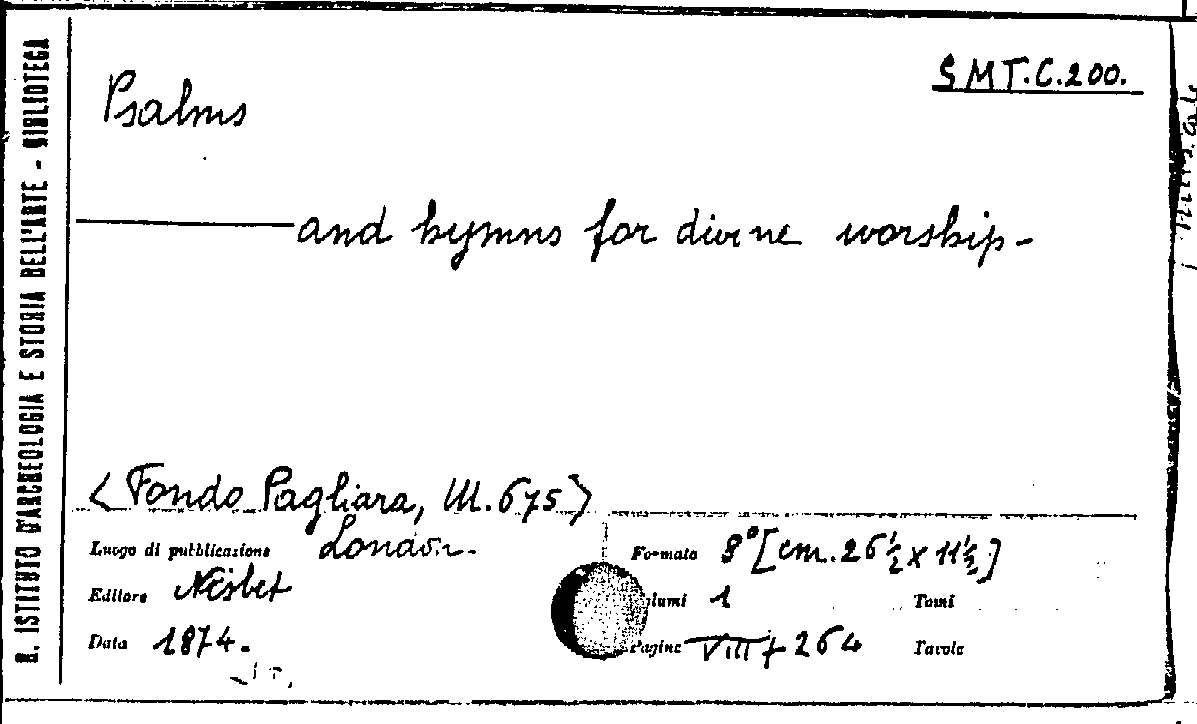 R. ISTITUTO D'ARCHEOLOGIA E STORIA DELL'ARTE - BIBLIOTECA
SMT.C.200.
Psalms
and hymns for divine worship-
<Fondo Pagliara, III.675>
Luogo di pubblicazione London.
Formato 8° [cm. 26½ x 11½]
Editore Nesbet
lumi 1 Tomi
Data 1874.
Pagine VIII + 264 Tavole